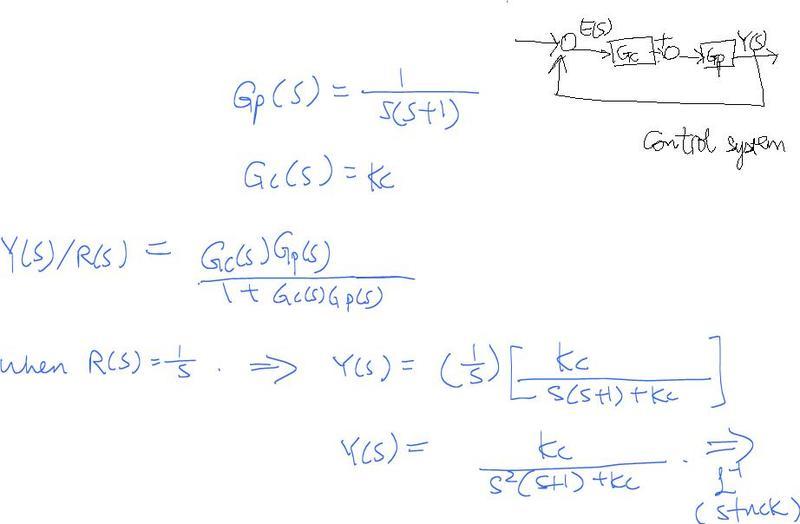 E(s)
Gc + Gp Y(s)
Control system
Gp(s) = 1 / s(s+1)
Gc(s) = Kc
Y(s)/R(s) = Gc(s)Gp(s) / 1 + Gc(s)Gp(s)
when R(s) = 1/s . ⇒ Y(s) = (1/s) [ Kc / s(s+1) + Kc ]
Y(s) = Kc / s²(s+1) + Kc . ⇒
L⁻¹
(stuck)